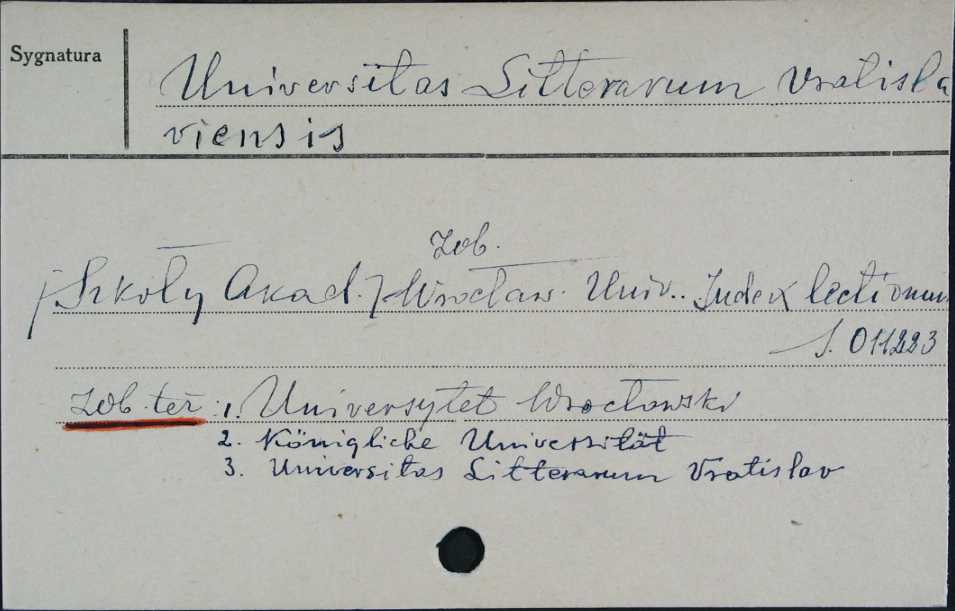 Sygnatura
Universitas Litterarum Vratisla
viensis
Zob.
[Szkoły Akad.] Wrocław. Univ.. Index lectionum
S. 011223
Zob. też: 1. Uniwersytet Wrocławski
2. Königliche Universität
3. Universitas Litterarum Vratislav